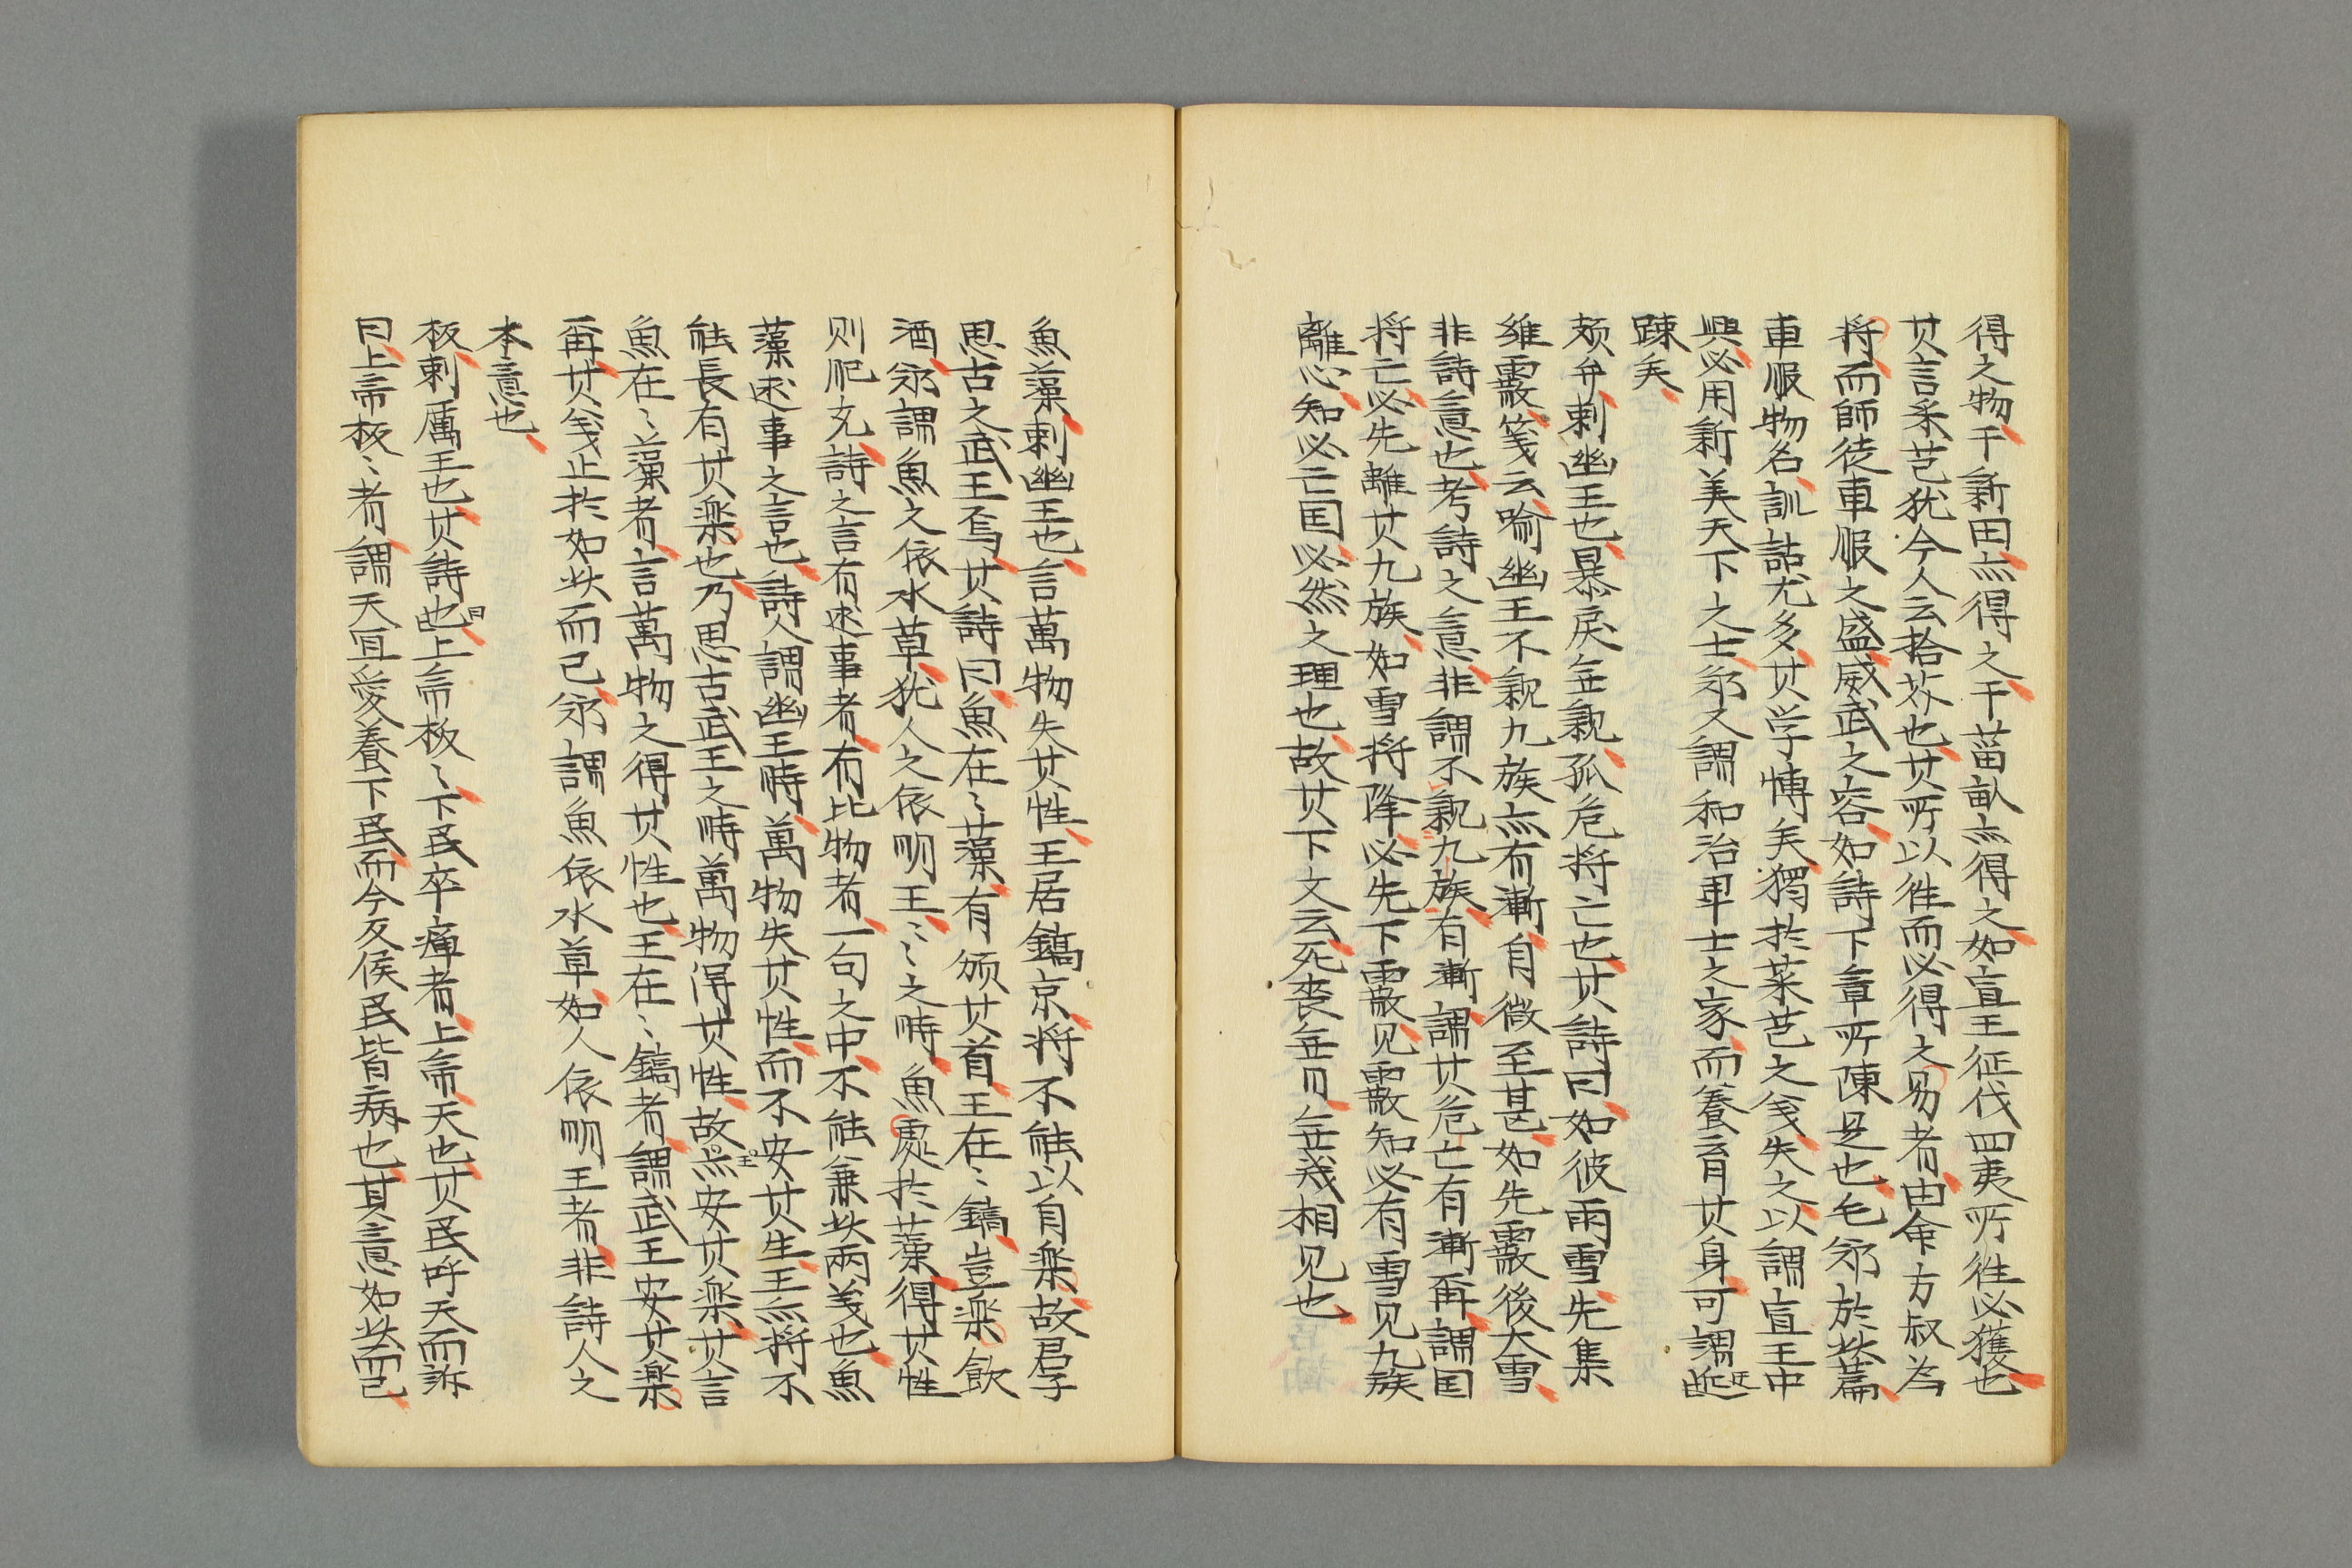 得之物于新田亦得之于菑畝亦得之如宣王征伐四夷所往必獲也
其言采芑犹今人云拾芥也其所以往而必得之易者由命方叔為
将而師徒車服之盛威武之容如詩下章所陳是也毛鄭於此篇
車服物名訓詁尤多其学博矣獨於菜芑之義失之以謂宣王中
興必用新美天下之士鄭又謂和治軍士之家而養育其身可謂迂
踈矣
頍弁刺幽王也暴戾無親孤危将亡也其詩曰如彼雨雪先集
維霰箋云喻幽王不親九族亦有漸自微至甚如先霰後大雪
非詩意也考詩之意非謂不親九族有漸謂其危亡有漸再謂国
将亡必先離其九族如雪将降必先下霰见霰知必有雪见九族
離心知必亡国必然之理也故其下文云死喪無日無幾相见也
魚藻刺幽王也言萬物失其性王居鎬京将不能以自楽故君子
思古之武王焉其詩曰魚在〻藻有頒其首王在〻鎬豈楽飲
酒鄭謂魚之依水草犹人之依明王〻〻之時魚處於藻得其性
则肥充詩之言有述事者有比物者一句之中不能兼此兩義也魚
藻述事之言也詩人謂幽王時萬物失其性而不安其生王亦将不
能長有其楽也乃思古武王之時萬物得其性故王亦安其楽其言
魚在〻藻者言萬物之得其性也王在〻鎬者謂武王安其楽
再其義止於如此而已鄭謂魚依水草如人依明王者非詩人之
本意也
板刺厲王也其詩曰上帝板〻下民卒癉者上帝天也其民呼天而訴
曰上帝板〻者謂天宜愛養下民而今反俟民皆病也其意如此而已